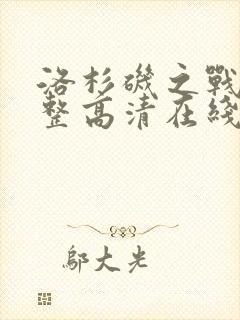 洛杉磯之戰
整高清在綫
鄔大光